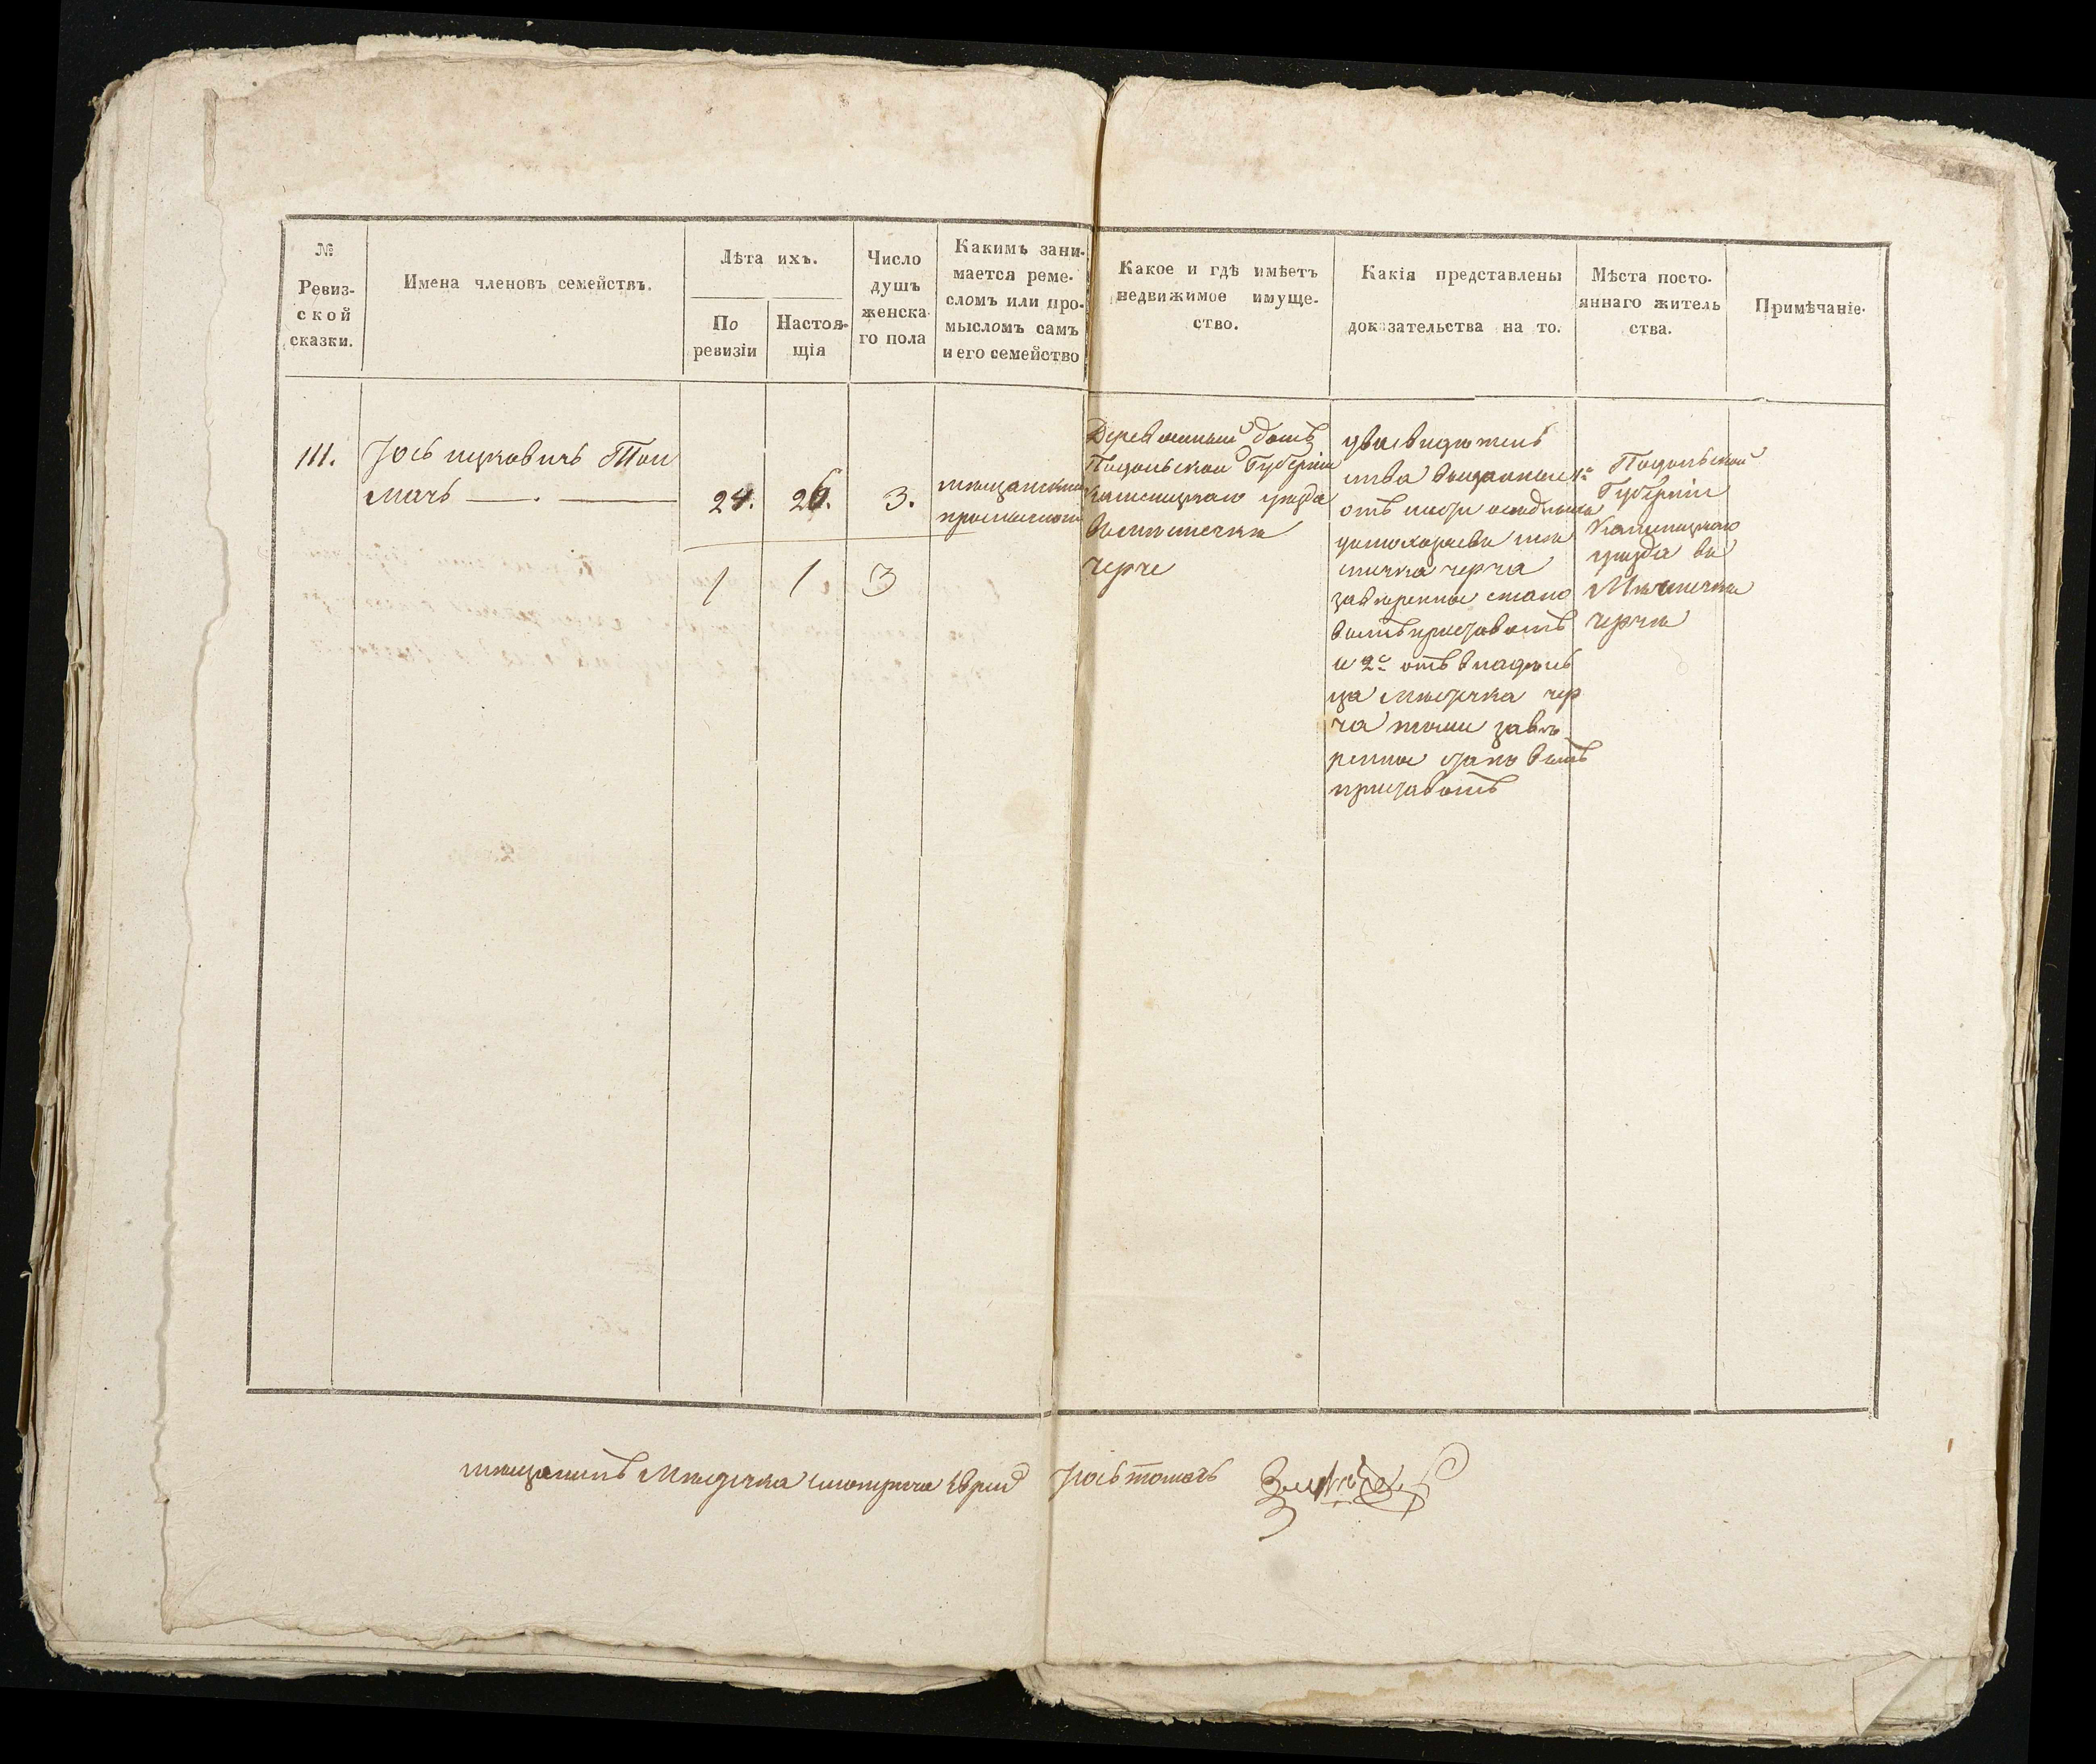 №
Ревиз-
ской
сказки.
Имена членовъ семействъ.
Лѣта ихъ.
По
ревизіи
Настоя-
щія
Число
душъ
женска-
го пола
Какимъ зани-
мается реме-
сломъ или про-
мысломъ самъ
и его семейство
Какое и гдѣ имѣетъ
недвижимое имуще-
ство.
Какія представлены
доказательства на то.
Мѣста посто-
яннаго житель
ства.
Примѣчаніе.
111.
Іось ицковичь Тол
мачь
24.
26.
3.
мещанскимъ
промысломъ
1
1
3
Деревянный домъ
Подольской Губерніи
Каменецкаго уезда
вместечки
черче
два видетель
ства выданные 1е
отъ
местичка черча
заверенное стано
вымъ приставомъ
и 2е отъ владель
ца местечка чер
ча тоже заве
ренное становымъ
приставомъ
Подольской
Губерніи
Каменецкаго
уезда ве
Местечки
черчи
мещанинъ Местечка смотрича Еврей Іось толмачъ